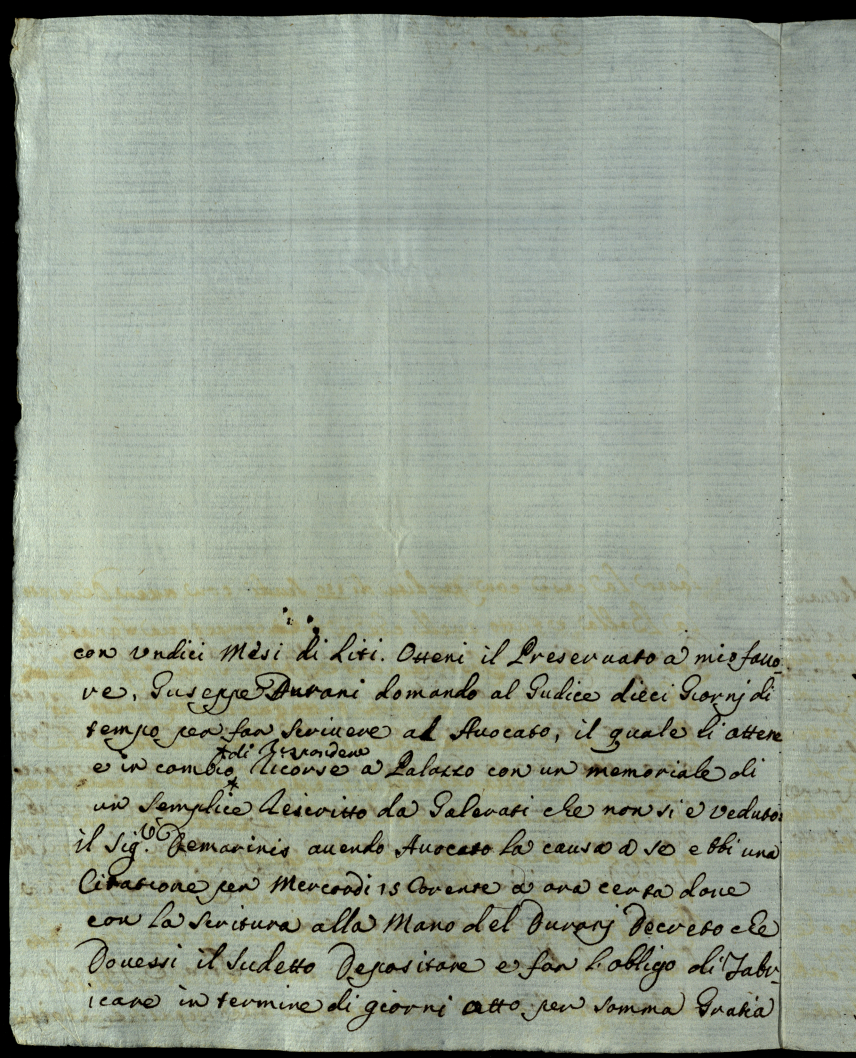 con vndici Mesi di Liti. Otteni il Preseruato à mio fauo-
re, Guseppe Durani domando al Gudice dieci Giornj di
tempo per far scriuere al Auocato, il quale li attene
*di Rispondere
e in cambio * Ricorse a Palazzo con un memoriale di
un Semplice Rescritto da Galerati che non si e veduto:
il Sig.r Demarinis auendo Auocato la causa a se ebbi una
Citatione per Mercordi 15 Corente a ora certa doue
con la Scritura alla Mano del Duranj Decreto che
Douessi il Sudetto Depositare e far l'obligo di Fabr-
icare in termine di giorni otto per somma Gratia